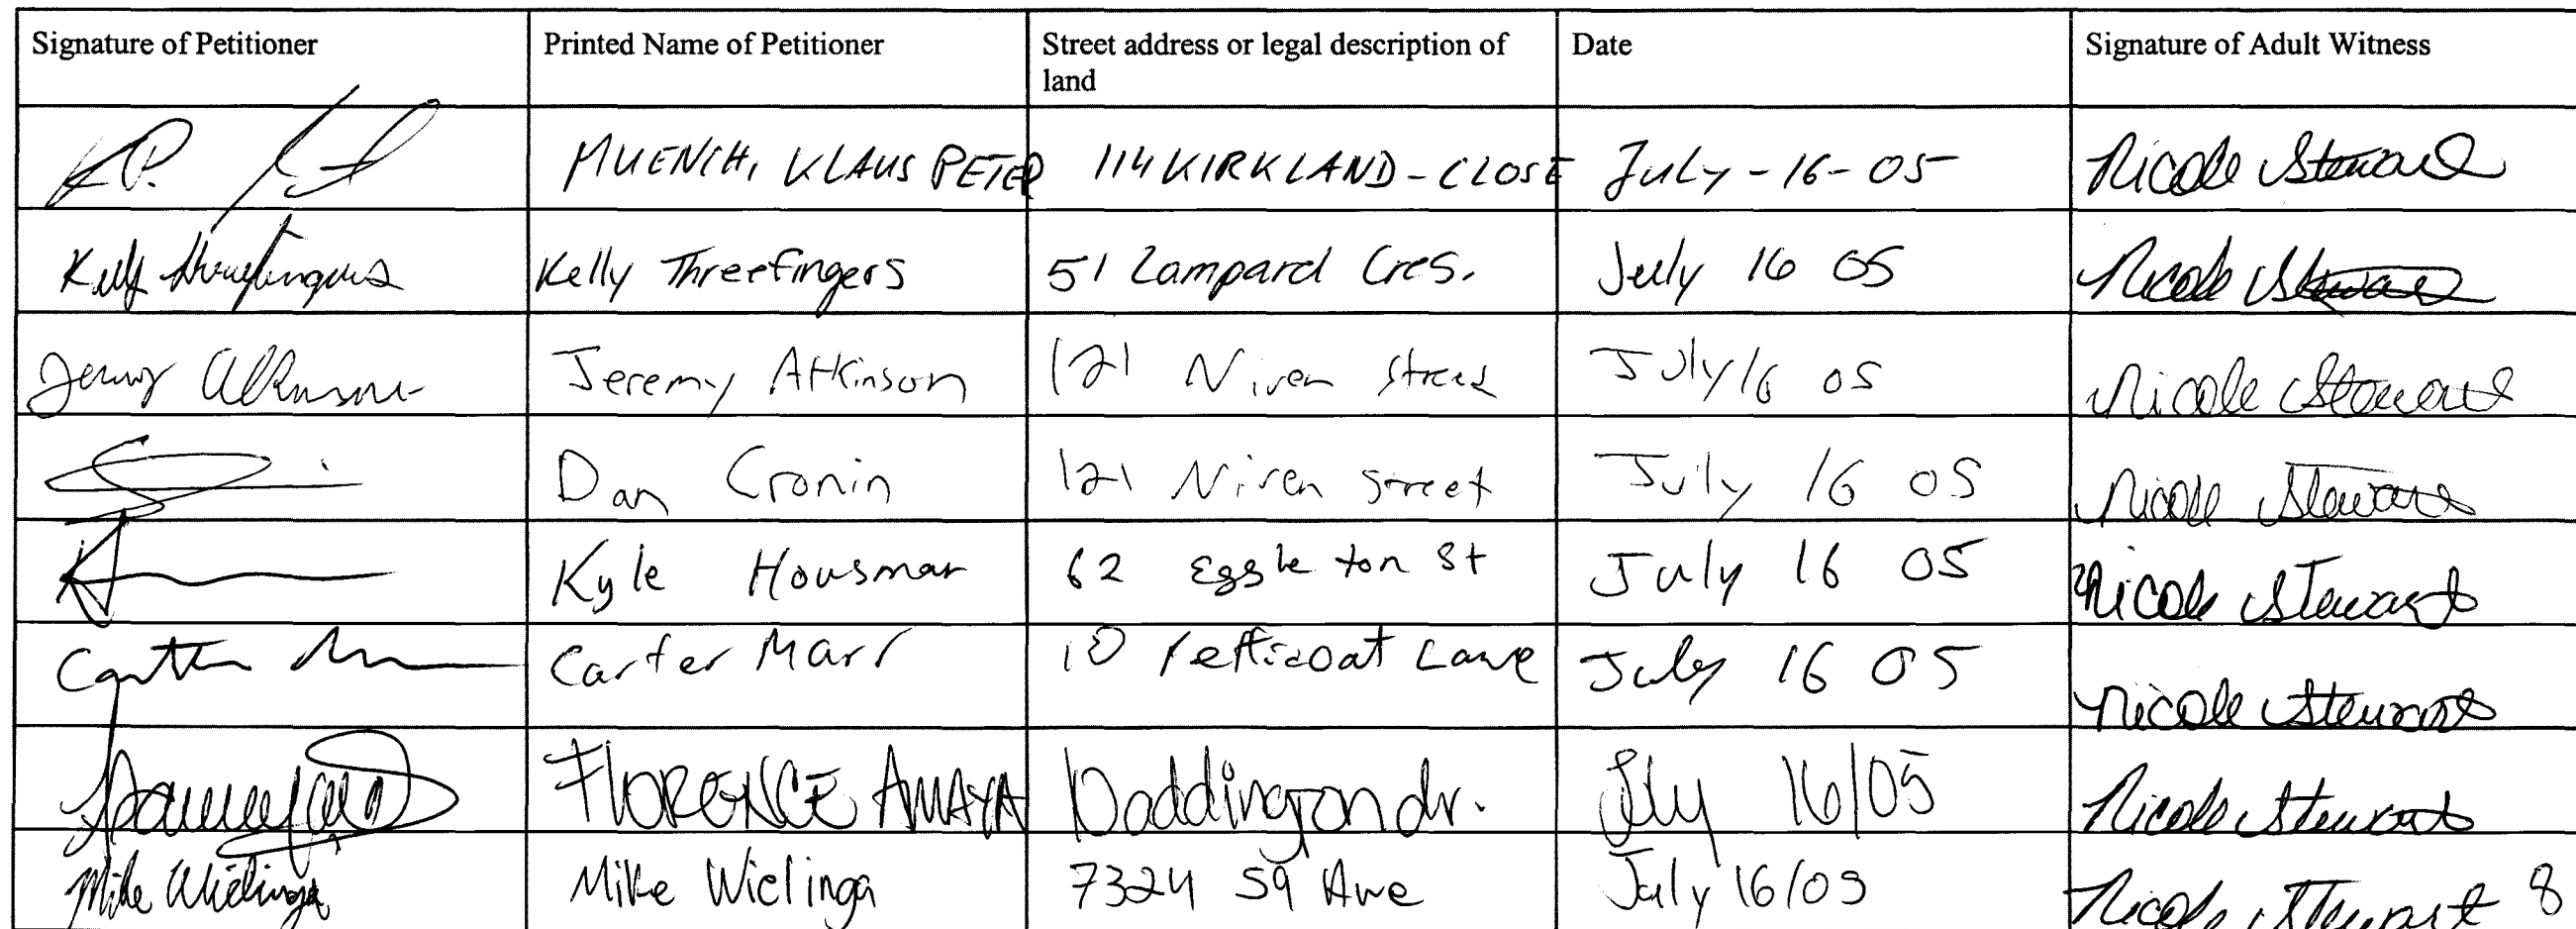 Signature of Petitioner Printed Name of Petitioner Street address or legal description of land Date Signature of Adult Witness
K.P. MUENCH, KLAUS PETER 114 KIRKLAND-CLOSE July-16-05 Nicole Stewart
Kelly Threefingers Kelly Threefingers 51 Lampard Cres. July 16 05 Nicole Stewart
Jeremy Atkinson Jeremy Atkinson 121 Niven Street July/16 05 Nicole Stewart
Dan Cronin 121 Niven Street July 16 05 Nicole Stewart
Kyle Housman 62 Eggleton St July 16 05 Nicole Stewart
Carter Marr Carter Marr 10 Petticoat Lane July 16 05 Nicole Stewart
FLORENCE AMAYA Doddington dr. Jly 16/05 Nicole Stewart
Mike Wielinga Mike Wielinga 7324 59 Ave July 16/05 Nicole Stewart 8